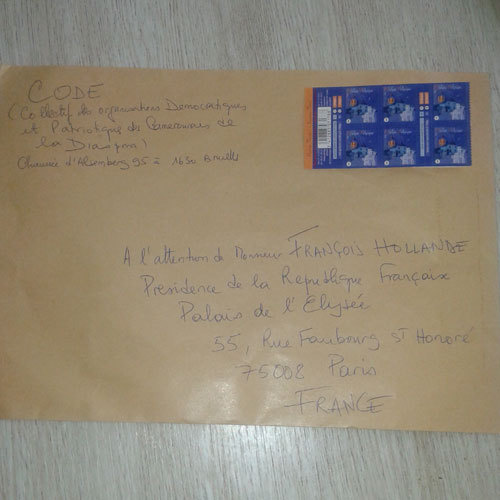 CODE
(Collectif des organisations Democratiques
et Patriotiques des Camerounais de
la Diaspora)
Chaussée d'Alsemberg 95 à 1650 Bruxelles
A l'attention de Monsieur FRANÇOIS HOLLANDE
Présidence de la République Française
Palais de l'Elysée
55, Rue Faubourg St Honoré
75008 Paris
FRANCE